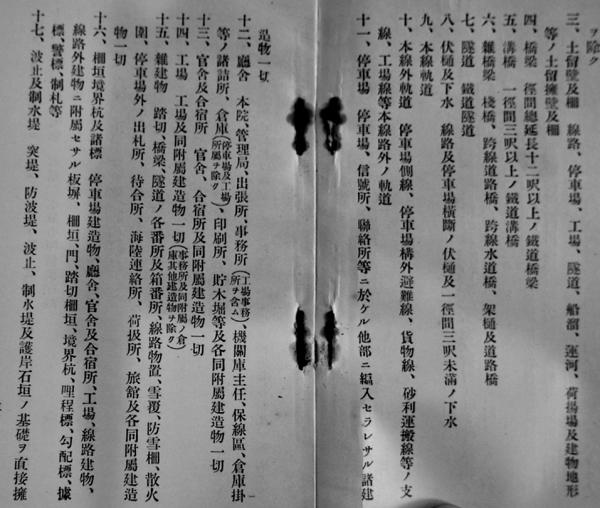 ヲ除ク
三、土留壁及柵　線路、停車場、工場、隧道、船溜、運河、荷揚場及建物地形
等ノ土留擁壁及柵
四、橋梁　徑間總延長十二呎以上ノ鐵道橋梁
五、溝橋　一徑間三呎以上ノ鐵道溝橋
六、雜橋梁　棧橋、跨線道路橋、跨線水道橋、架樋及道路橋
七、隧道　鐵道隧道
八、伏樋及下水　線路及停車場橫斷ノ伏樋及一徑間三呎未滿ノ下水
九、本線軌道
十、本線外軌道　停車場側線、停車場構外避難線、貨物線、砂利運搬線等ノ支
線、工場線等本線路外ノ軌道
十一、停車場　停車場、信號所、聯絡所等ニ於ケル他部ニ編入セラレサル諸建
造物一切
十二、廳舍　本院、管理局、出張所、事務所(工場事務所ヲ含ム)、機關庫主任、保線區、倉庫掛
等ノ諸詰所、倉庫(停車場及工場所屬ヲ除ク)、印刷所、貯木堀等及各同附屬建造物一切
十三、官舍及合宿所　官舍、合宿所及同附屬建造物一切
十四、工場　工場及同附屬建造物一切(事務所及同附屬倉庫其他建造物ヲ除ク)
十五、雜建物　踏切、橋梁、隧道ノ各番所及箱番所、線路物置、雪覆、防雪柵、散火
圍、停車場外ノ出札所、待合所、海陸連絡所、荷扱所、旅舘及各同附屬建造
物一切
十六、柵垣境界杭及諸標　停車場建造物、廳舍、官舍及合宿所、工場、線路建物、
線路外建物ニ附屬セサル板塀、柵垣、門、踏切柵垣、境界杭、哩程標、勾配標、據
標、警標、制札等
十七、波止及制水堤　突堤、防波堤、波止、制水堤及護岸石垣ノ基礎ヲ直接擁